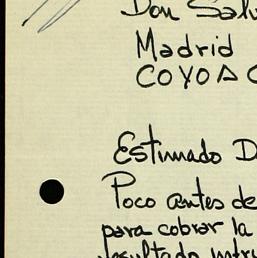 Don Salv
Madrid
COYOAC
Estimado D
Poco antes de
para cobrar la
resultado